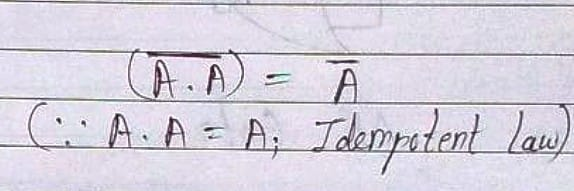 (A̅ ̅.̅ ̅A̅) = A̅
(∵ A . A = A; Idempotent law)